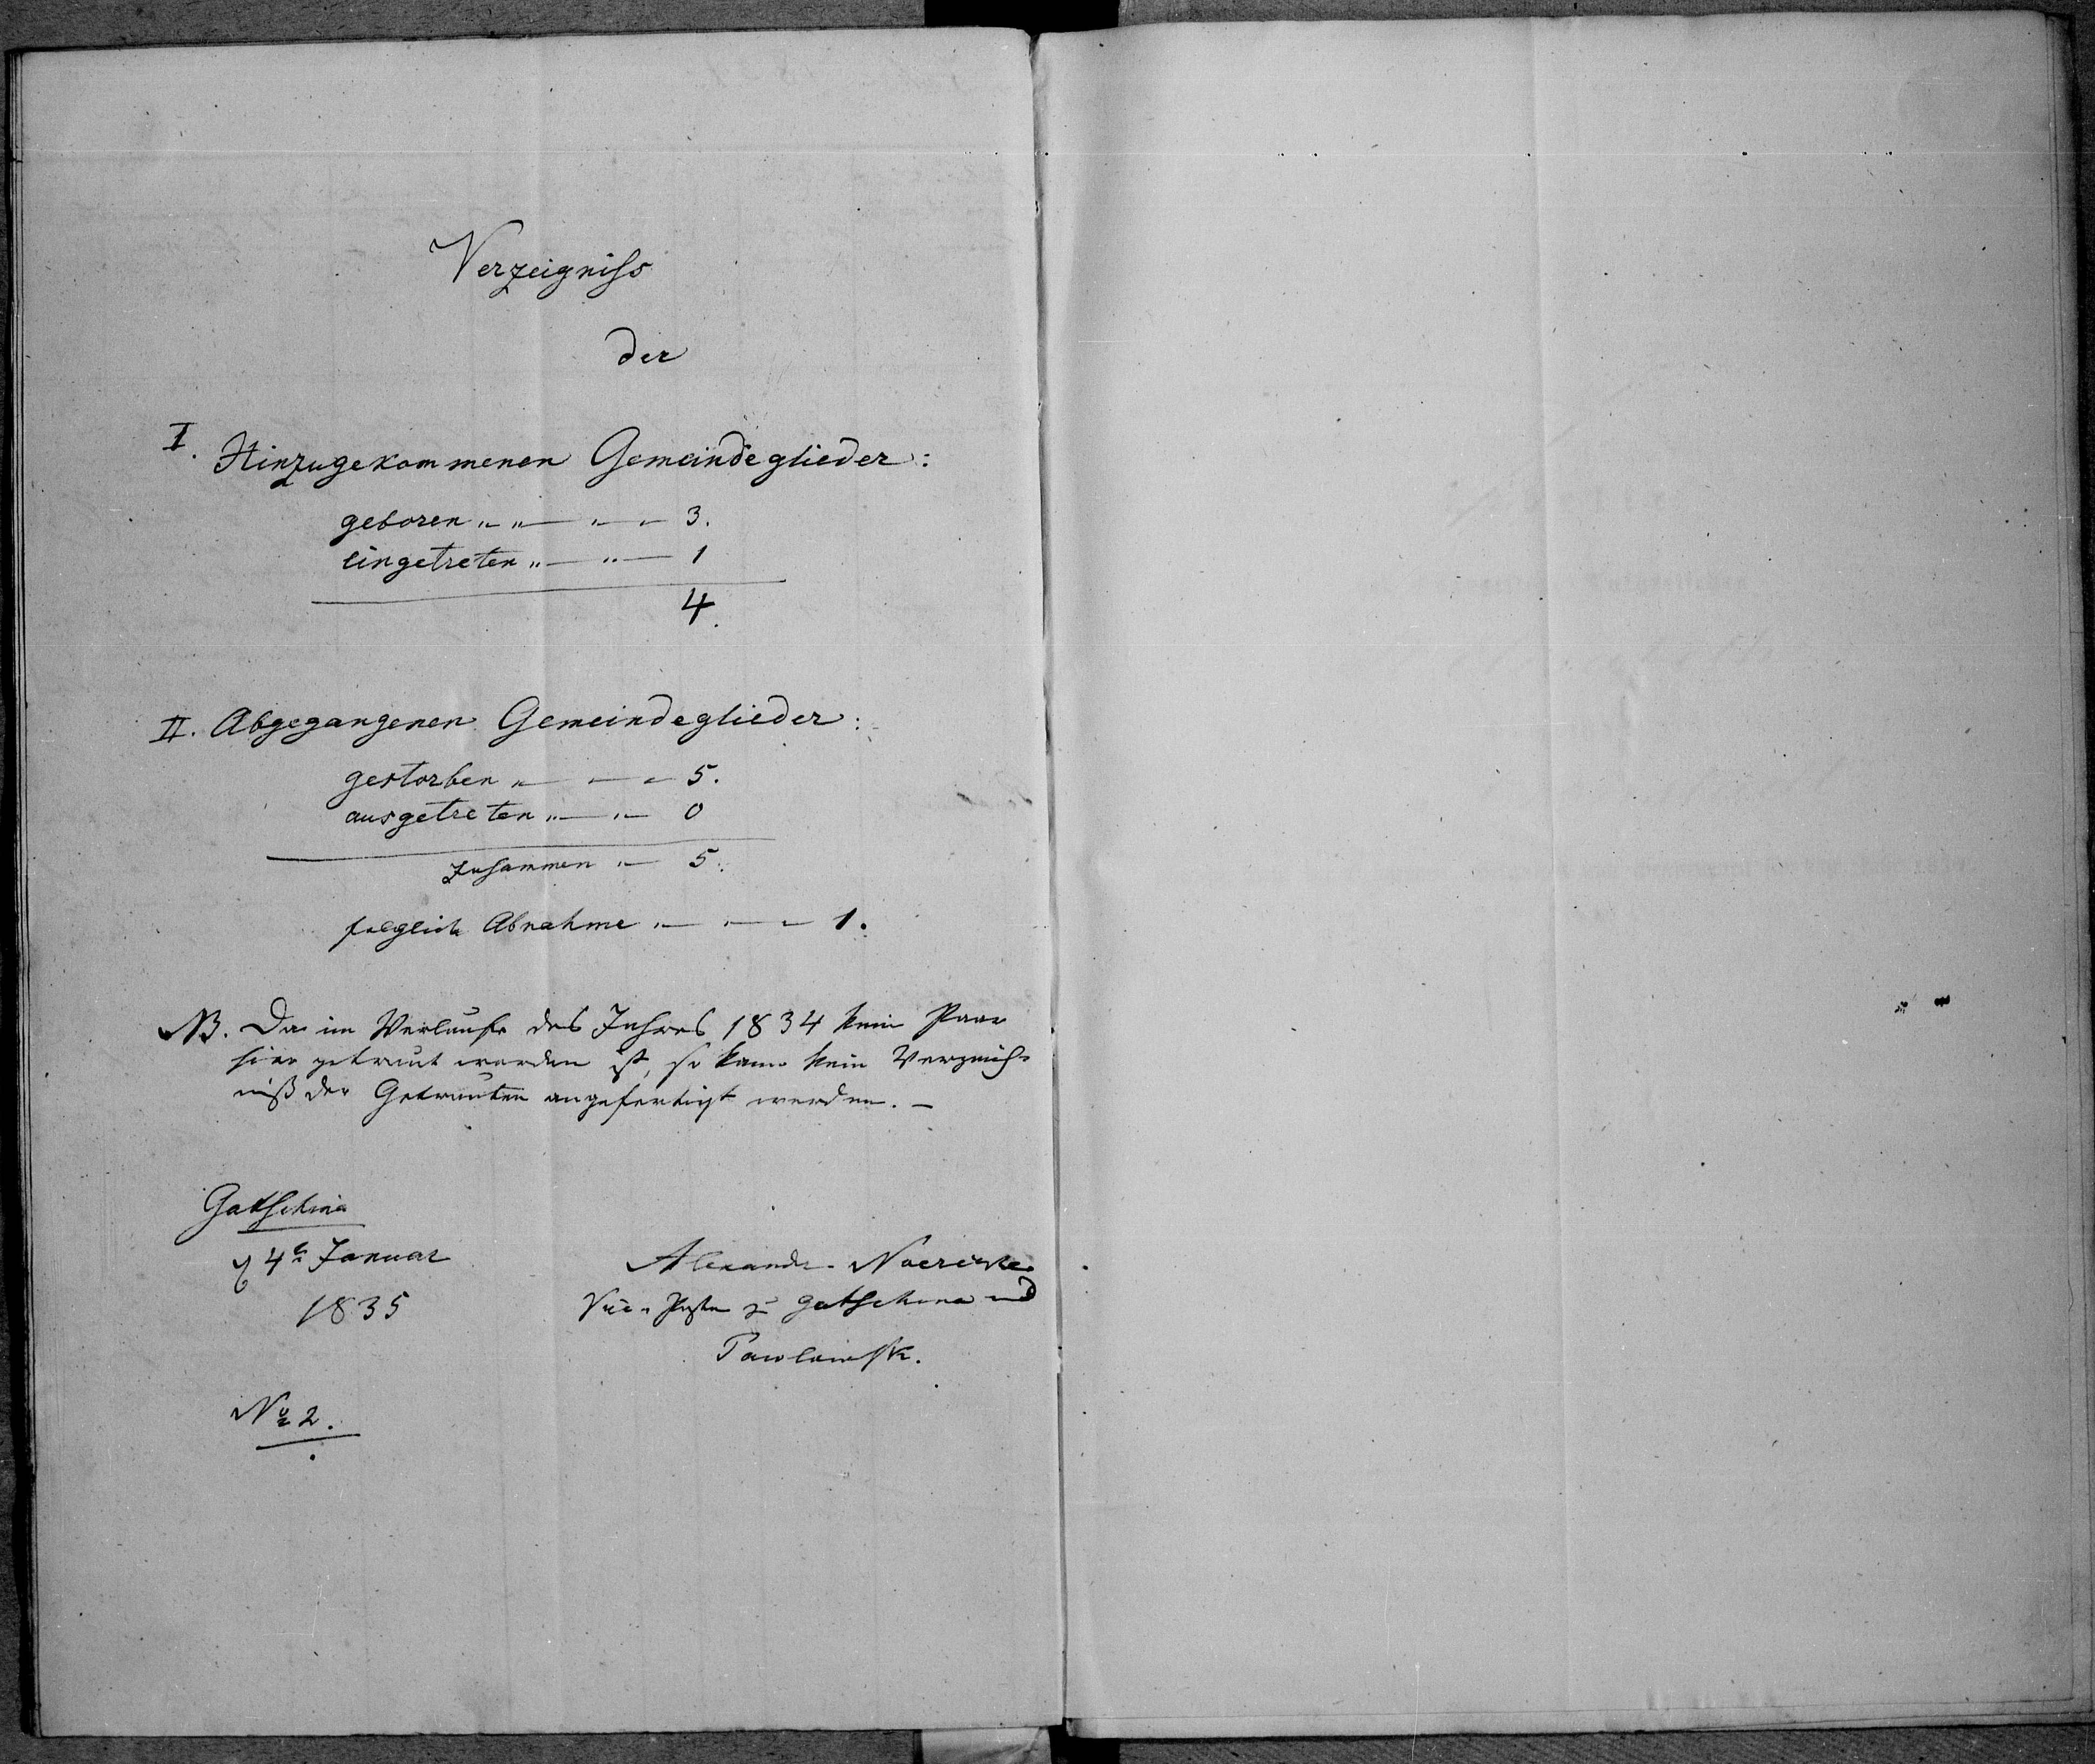 Verzeigniss
der
I. Hinzugekommenen Gemeindeglieder:
geboren „ „ — „ „ 3.
eingetreten „ — „ — 1
4.
II. Abgegangenen Gemeindeglieder:
gestorben „ — — „ 5.
ausgetreten „ — „ — 0
Zusammen „ — 5.
folglich Abnahme „ — „ — „ 1.
NB. Da im Verlaufe des Jahres 1834 kein Paar
hier getraut worden ist, so kann kein Verzeich-
niß der Getrauten angefertigt werden. —
Gatschina
d 4t Januar
1835
Alexander
Vice-Pastor zu Gatschina und
Pawlowsk.
No 2.